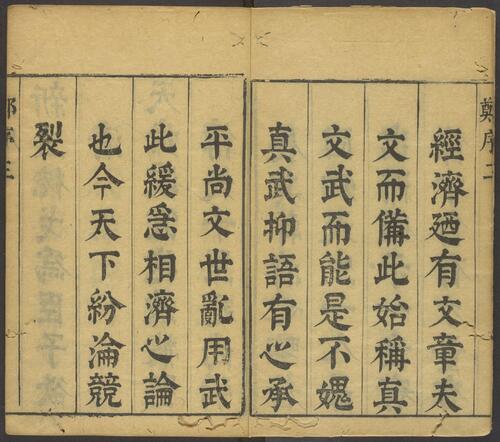 鄭序二
經濟廼有文章夫
文而備此始稱真
文武而能是不媿
真武抑語有之承
平尚文世亂用武
此緩急相濟之論
也今天下紛淪競
裂